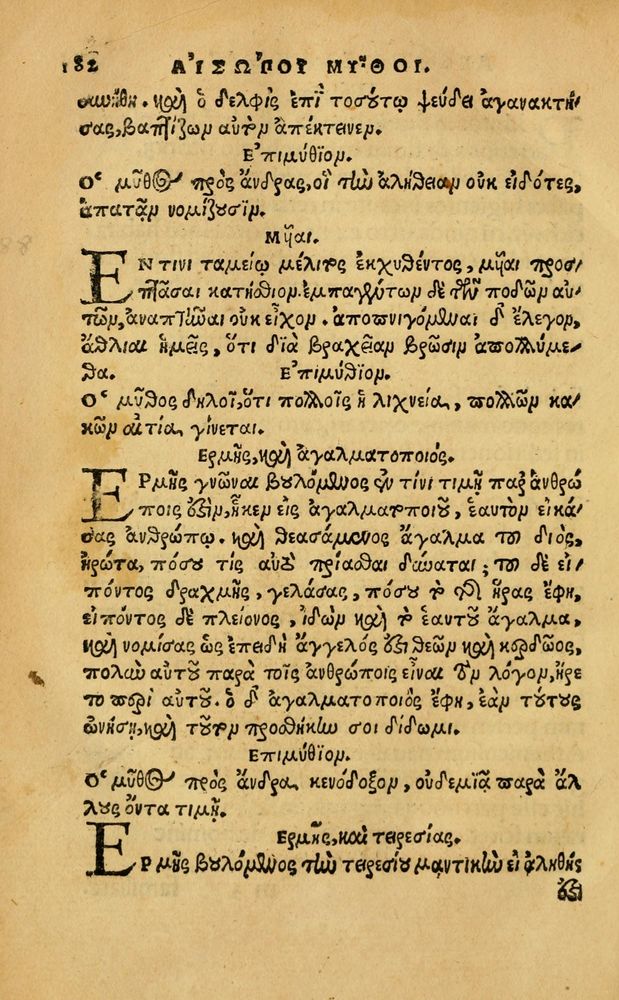 182 ΑἸΣΏΠΟΥ ΜΥ͂ΘΟΙ.
συνήθη. καὶ ὁ δελφὶς ἐπὶ τοσούτῳ ψεύδει ἀγανακτή-
σας, βαπτίζων αὐτὸν ἀπέκτεινεν.
Ἐπιμύθιον.
Ὁ μῦθος πρὸς ἄνδρας, οἳ τὴν ἀλήθειαν οὐκ εἰδότες,
ἀπατᾷν νομίζουσιν.
Μῆαι.
ΕΝ τινι ταμείῳ μέλιτος ἐκχυθέντος, μῆαι προσ-
πτᾶσαι κατήσθιον. ἐμπαγέντων δὲ τῶν ποδῶν αὐ-
τῶν, ἀναπτῆναι οὐκ εἶχον. ἀποπνιγόμεναι δ' ἔλεγον,
ἄθλιαι ἡμεῖς, ὅτι διὰ βραχεῖαν βρῶσιν ἀπολλύμε-
θα. Ἐπιμύθιον.
Ὁ μῦθος δηλοῖ, ὅτι πολλοῖς ἡ λιχνεία, πολλῶν κα-
κῶν αἰτία γίνεται.
Ερμῆς, καὶ ἀγαλματοποιός.
ΕΡμῆς γνῶναι βουλόμενος ἐν τίνι τιμῇ παρ' ἀνθρώ
ποις ἐστὶν, ἧκεν εἰς ἀγαλματοποιοῦ, ἑαυτὸν εἰκά-
σας ἀνθρώπῳ. καὶ θεασάμενος ἄγαλμα τοῦ διὸς,
ἠρώτα, πόσου τίς αὐτὸ πρίασθαι δύναται; τοῦ δὲ εἰ-
πόντος δραχμῆς, γελάσας, πόσου τὸ τῆς ἥρας ἔφη,
εἰπόντος δὲ πλείονος, ἰδὼν καὶ τὸ ἑαυτοῦ ἄγαλμα,
καὶ νομίσας ὡς ἐπειδὴ ἄγγελός ἐστι θεῶν καὶ κερδῶος,
πολὺν αὐτοῦ παρὰ τοῖς ἀνθρώποις εἶναι τὸν λόγον, ἤρε
το περὶ αὐτοῦ. ὁ δ' ἀγαλματοποιὸς ἔφη, ἐὰν τούτους
ὠνήσῃ, καὶ τοῦτον προσθήκην σοι δίδωμι.
Ἐπιμύθιον.
Ὁ μῦθος πρὸς ἄνδρα κενόδοξον, οὐδεμιᾷ παρὰ ἄλ
λους ὄντα τιμῇ.
Ερμῆς, καὶ τειρεσίας.
ΕΡμῆς βουλόμενος τὴν τειρεσίου μαντικὴν εἰ ἀληθής
ἐστι